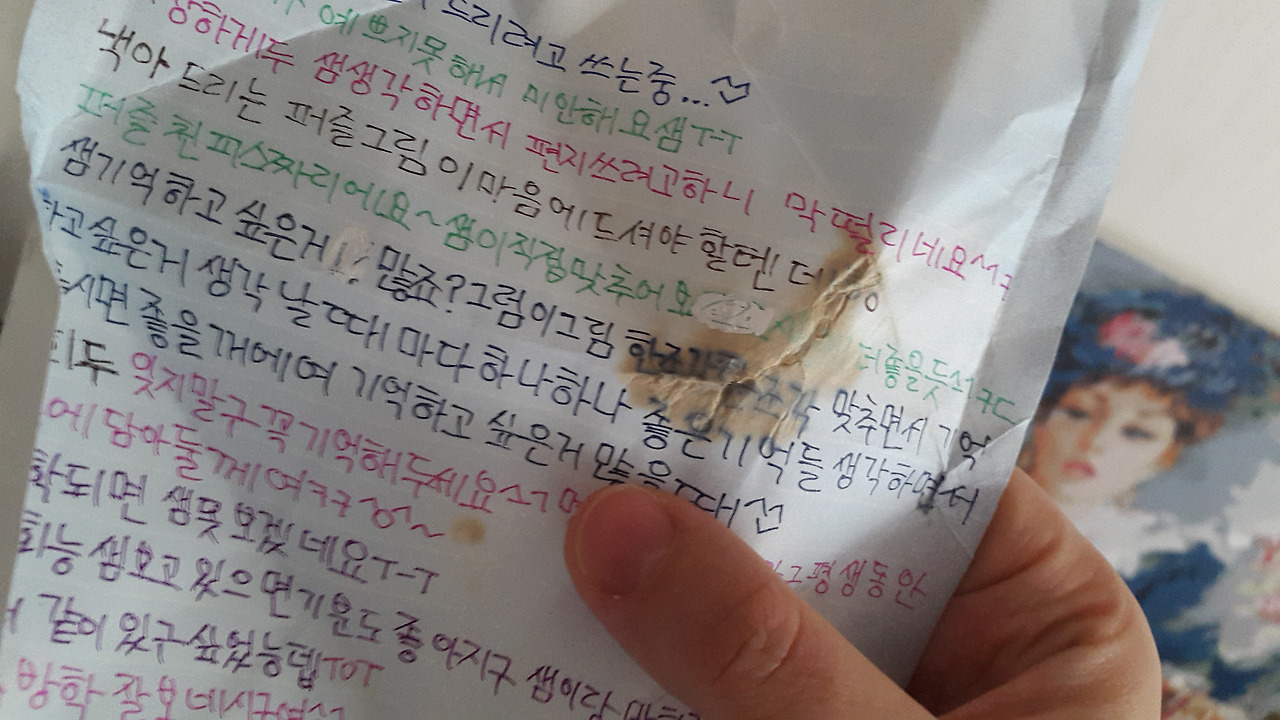 드리려고 쓰는중...
예쁘지못해서 미안해요샘T-T
하게두 샘생각하면서 편지쓰려고하니 막떨리네요
낵아 드리는 퍼즐그림이마음에드셔야 할텐데
퍼즐 흰피스짜리에요~샘이직접맞추어요 더좋을듯
샘기억하고 싶은거 많죠?그럼이그림 한조각 조각 맞추면서 기억
하고싶은거 생각 날때마다하나하나 좋은기억들생각하면서
시면 좋을꺼에여 기억하고 싶은거 있을때
두 잊지말구꼭기억해두세요 평생동안
에담아둘께여
학되면 샘못보겠네요T-T
희능 샘보고있으면기운도 좋아지구 샘이랑
같이있구싶었능뎁TOT
방학 잘보네시구여